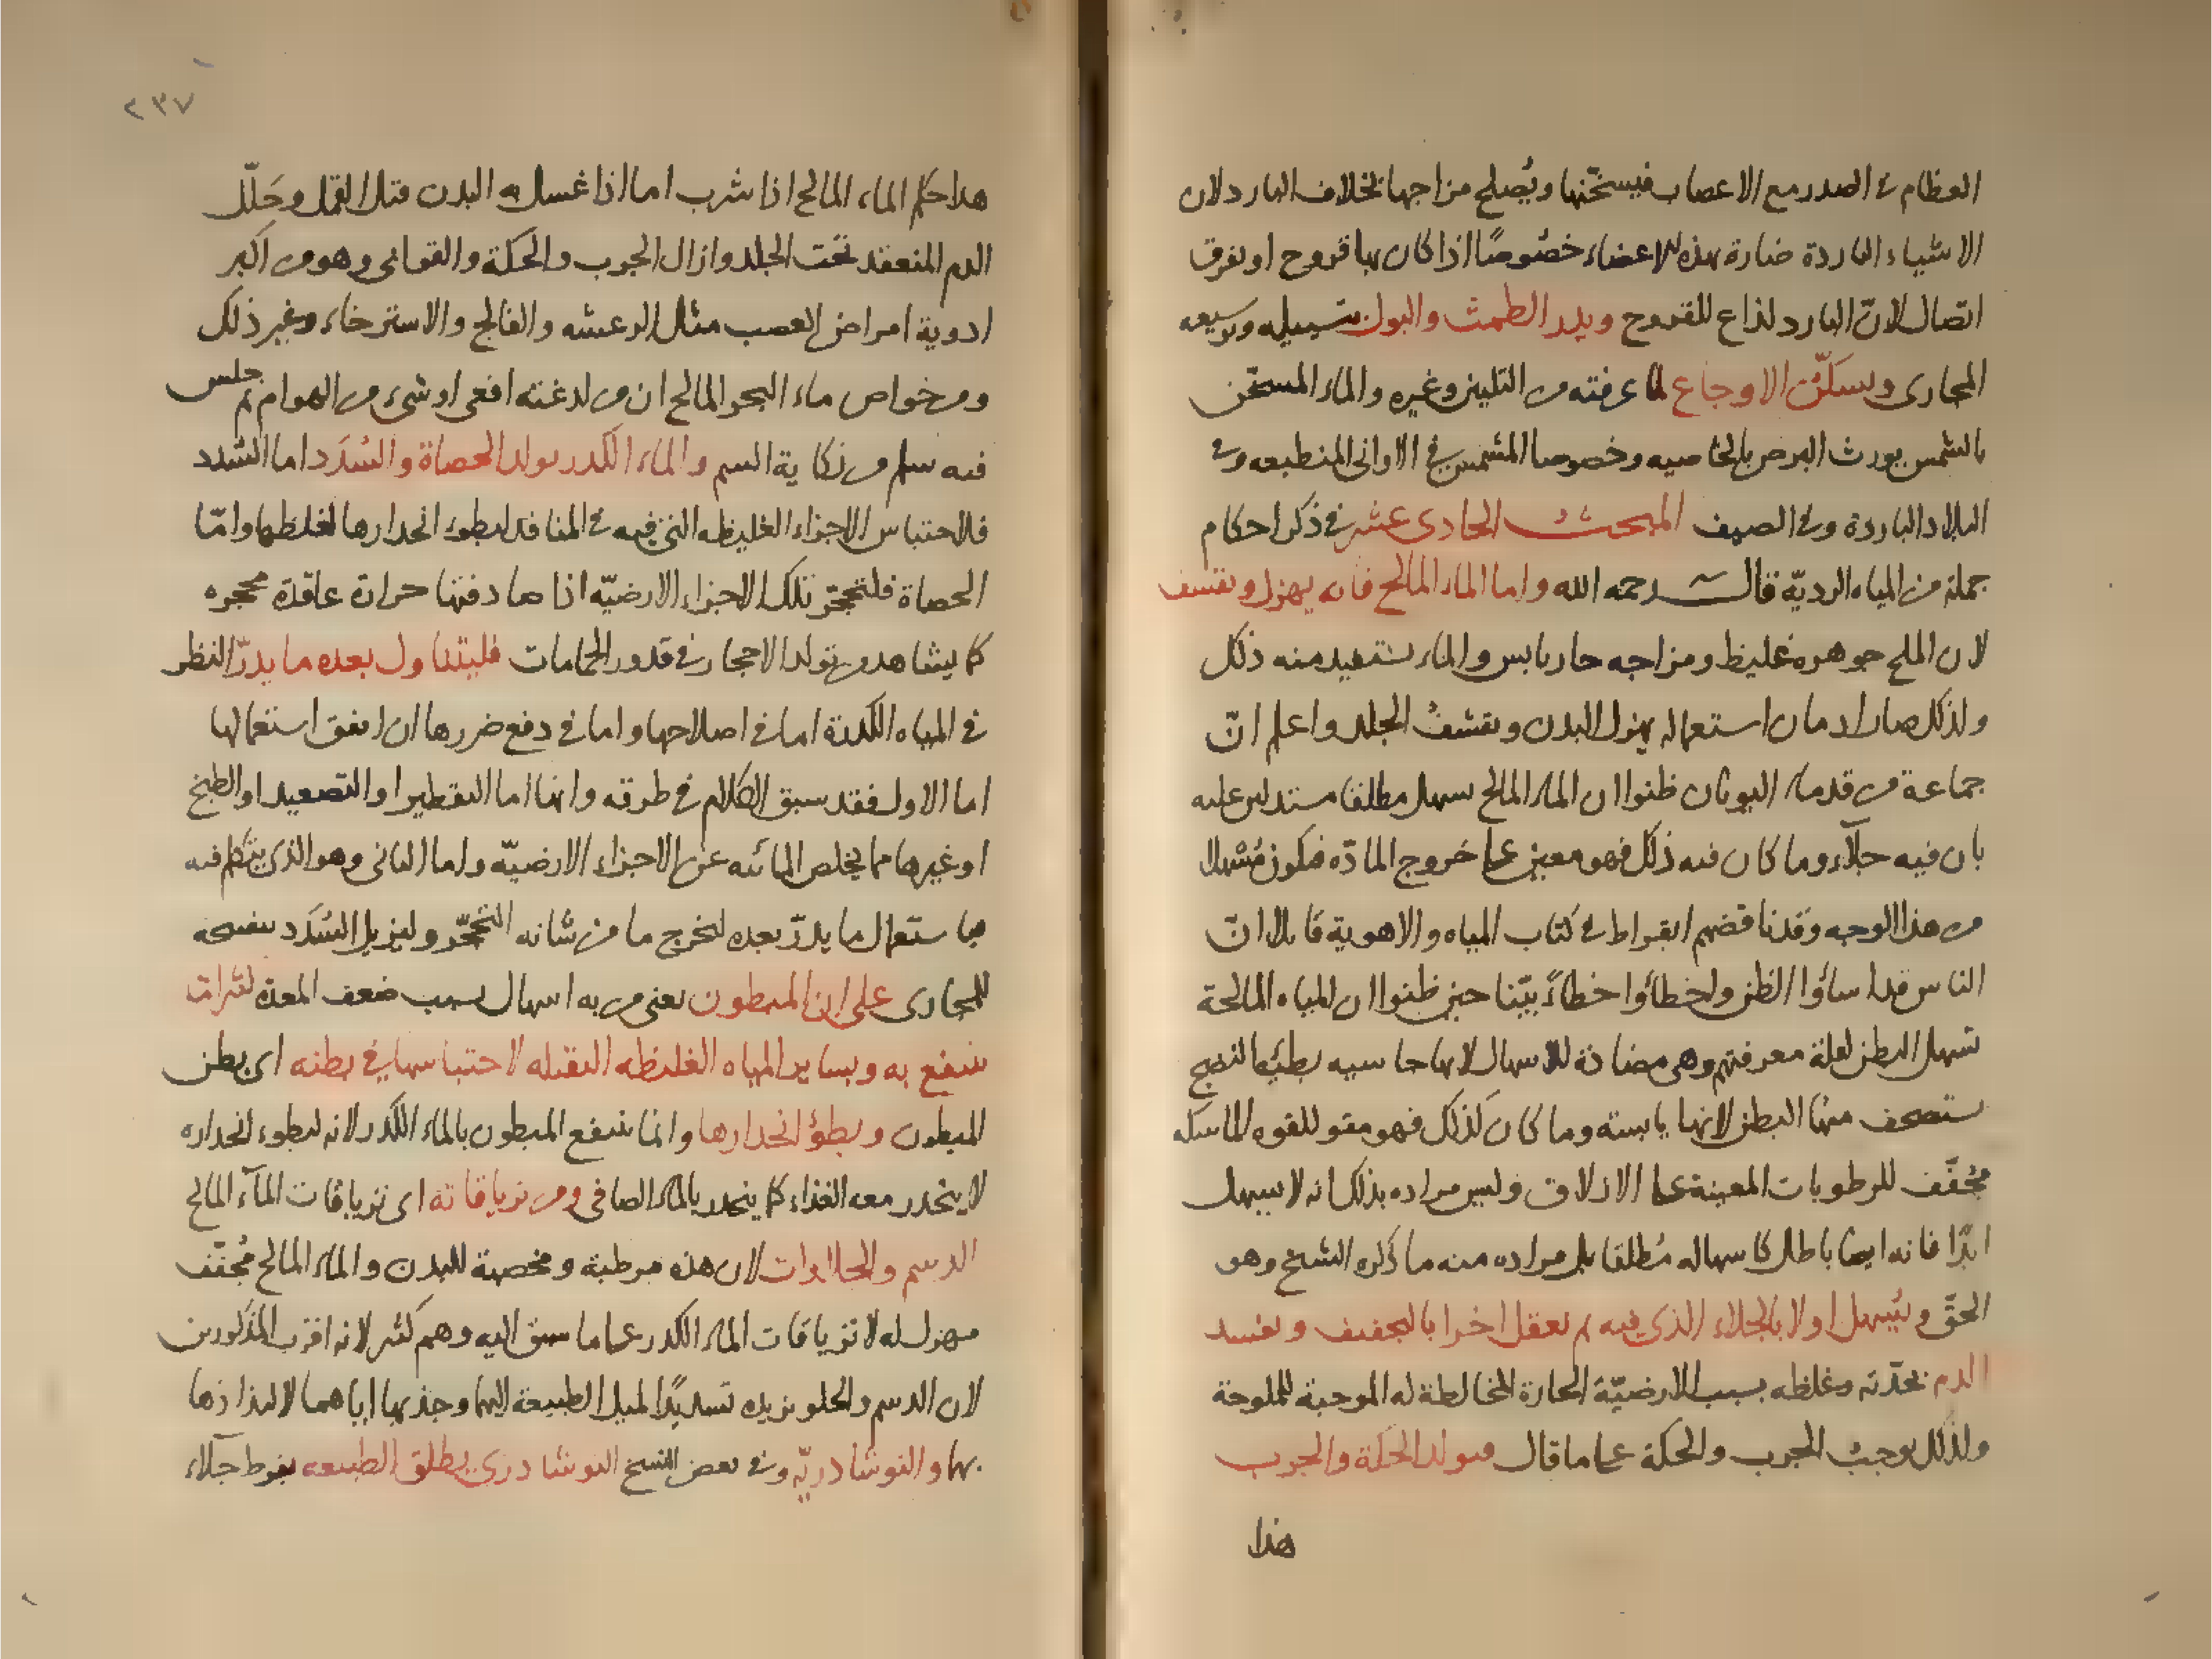 العظام في الصدر مع الاعصاب فيسخّنها ويُصلح مزاجها بخلاف البارد لان
الاشياء الباردة ضارة بهذه الاعضاء خصُوصًا اذا كان بها قروح او تفرق
اتصال لانّ البارد لذاع للقروح ويدر الطمث والبول بتسييله وتوسيعه
المجارى ويسكّن الاوجاع لما عرفته من التليين وغيره والماء المسخّن
بالشمس يورث البرص بالخاصيه وخصوصا المشمس في الاوانى المنطبعه وفي
البلاد الباردة وفي الصيف المبحث الحادى عشر في ذكر احكام
جملة من المياه الرديّة قال رحمه الله واما الماء المالح فانه يهزل ويقشف
لان الملح جوهره غليظ ومزاجه حار يابس والماء يستفيد منه ذلك
ولذلك صار ادمان استعماله يهزل البدن ويقشف الجلد واعلم انّ
جماعة من قدماء اليونان ظنوا ان الماء المالح يسهل مطلقا مستدلين عليه
بان فيه جلآء وما كان فيه ذلك فهو معين على خروج المادّه فيكون مُسْهلا
من هذا الوجه وقد ناقضهم ابقراط في كتاب المياه والاهوية قايلا انّ
الناس قد اساؤا الظن واخطاؤا خطاءً بيّنا حين ظنوا ان المياه المالحة
تسهل البطن لقلة معرفتهم وهى مضادة للاسهال لانها جاسيه بطيّه النضج
يستحصف منها البطن لانها يابسته وما كان كذلك فهو مقو للقوه الماسكه
مجُفّف للرطوبات المعينة على الازلاق وليس مراده بذلك انه لا يسهل
ابدًا فانه ايضًا باطل كاسهاله مُطلقا بل مراده منه ما ذكره الشيخ وهو
الحقّ ويُسهل اولا بالجلاء الذى فيه ثم يعقل اخرا بالتجفيف ويفسد
الدم بحدّته وغلظه بسبب الارضيّة الحارة المخالطة له الموجبة للملوحة
ولذلك يوجب الجرب والحكة على ما قال فيولد الحكة والجرب
هذا
٢٣٧
هذا حكم الماء المالح اذا شرب اما اذا غسل به البدن قتل القمل وحَلّل
الدم المنعقد تحت الجلد وازال الجرب والحكة والقوابى وهو من اكبر
ادوية امراض العصب مثل الرعشه والفالج والاسترخاء وغير ذلك
ومن خواص ماء البحر المالح ان من لدغته افعى او شىء من الهوام ثم جلس
فيه سلم من نكاية السم والماء الكدر يولد الحصاة والسُدَد اما السُّدد
فلاحتباس الاجزاء الغليظه التى فيه في المنافذ لبطوء انحدارها لغلظها وامّا
الحصاة فلتحجّر تلك الاجزاء الارضيّه اذا صادفتها حرارة عاقدة محجره
كما يشاهد من تولد الاحجار في قدور الحمامات فليتناول بعده ما يدرّ النظر
في المياه الكدرة اما في اصلاحها واما في دفع ضررها ان اتفق استعمالها
اما الاول فقد سبق الكلام في طرقه وانها اما التقطير او التصعيد او الطبخ
او غيرها مما يخلص المائيه عن الاجزاء الارضيّه واما الثانى وهو الذى يتكلم فيه
فباستعمال ما يدرّ بعده ليخرج ما من شانه التحجّر وليزيل السُدَد بتفتيحه
للمجارى على ان المبطون يعنى من به اسهال بسبب ضعف المعدة لثراب
ينتفع به وبساير المياه الغليظه الثقيله لاحتباسها في بطنه اى بطن
المبطون وبطؤ انحدارها وانما ينتفع المبطون بالماء الكدر لانه لبطوء انحداره
لا ينحدر معه الغذاء كما ينحدر بالماء الصافى ومن ترياقاته اى ترياقات المآء المالح
الدسم والحلاوات لان هذه مرطبة ومخصبة للبدن والماء المالح مُجفّف
مهزل له لا ترياقات الماء الكدر على ما سبق اليه وهم كثير لانه اقرب المذكورين
لان الدسم والحلو يزيده تسديدًا لميل الطبيعة اليهما وجذبها اياهما لالتذاذها
بهما والنوشادريّه وفي بعض النسخ النوشادرى يطلق الطبيعه بفرط جلآء